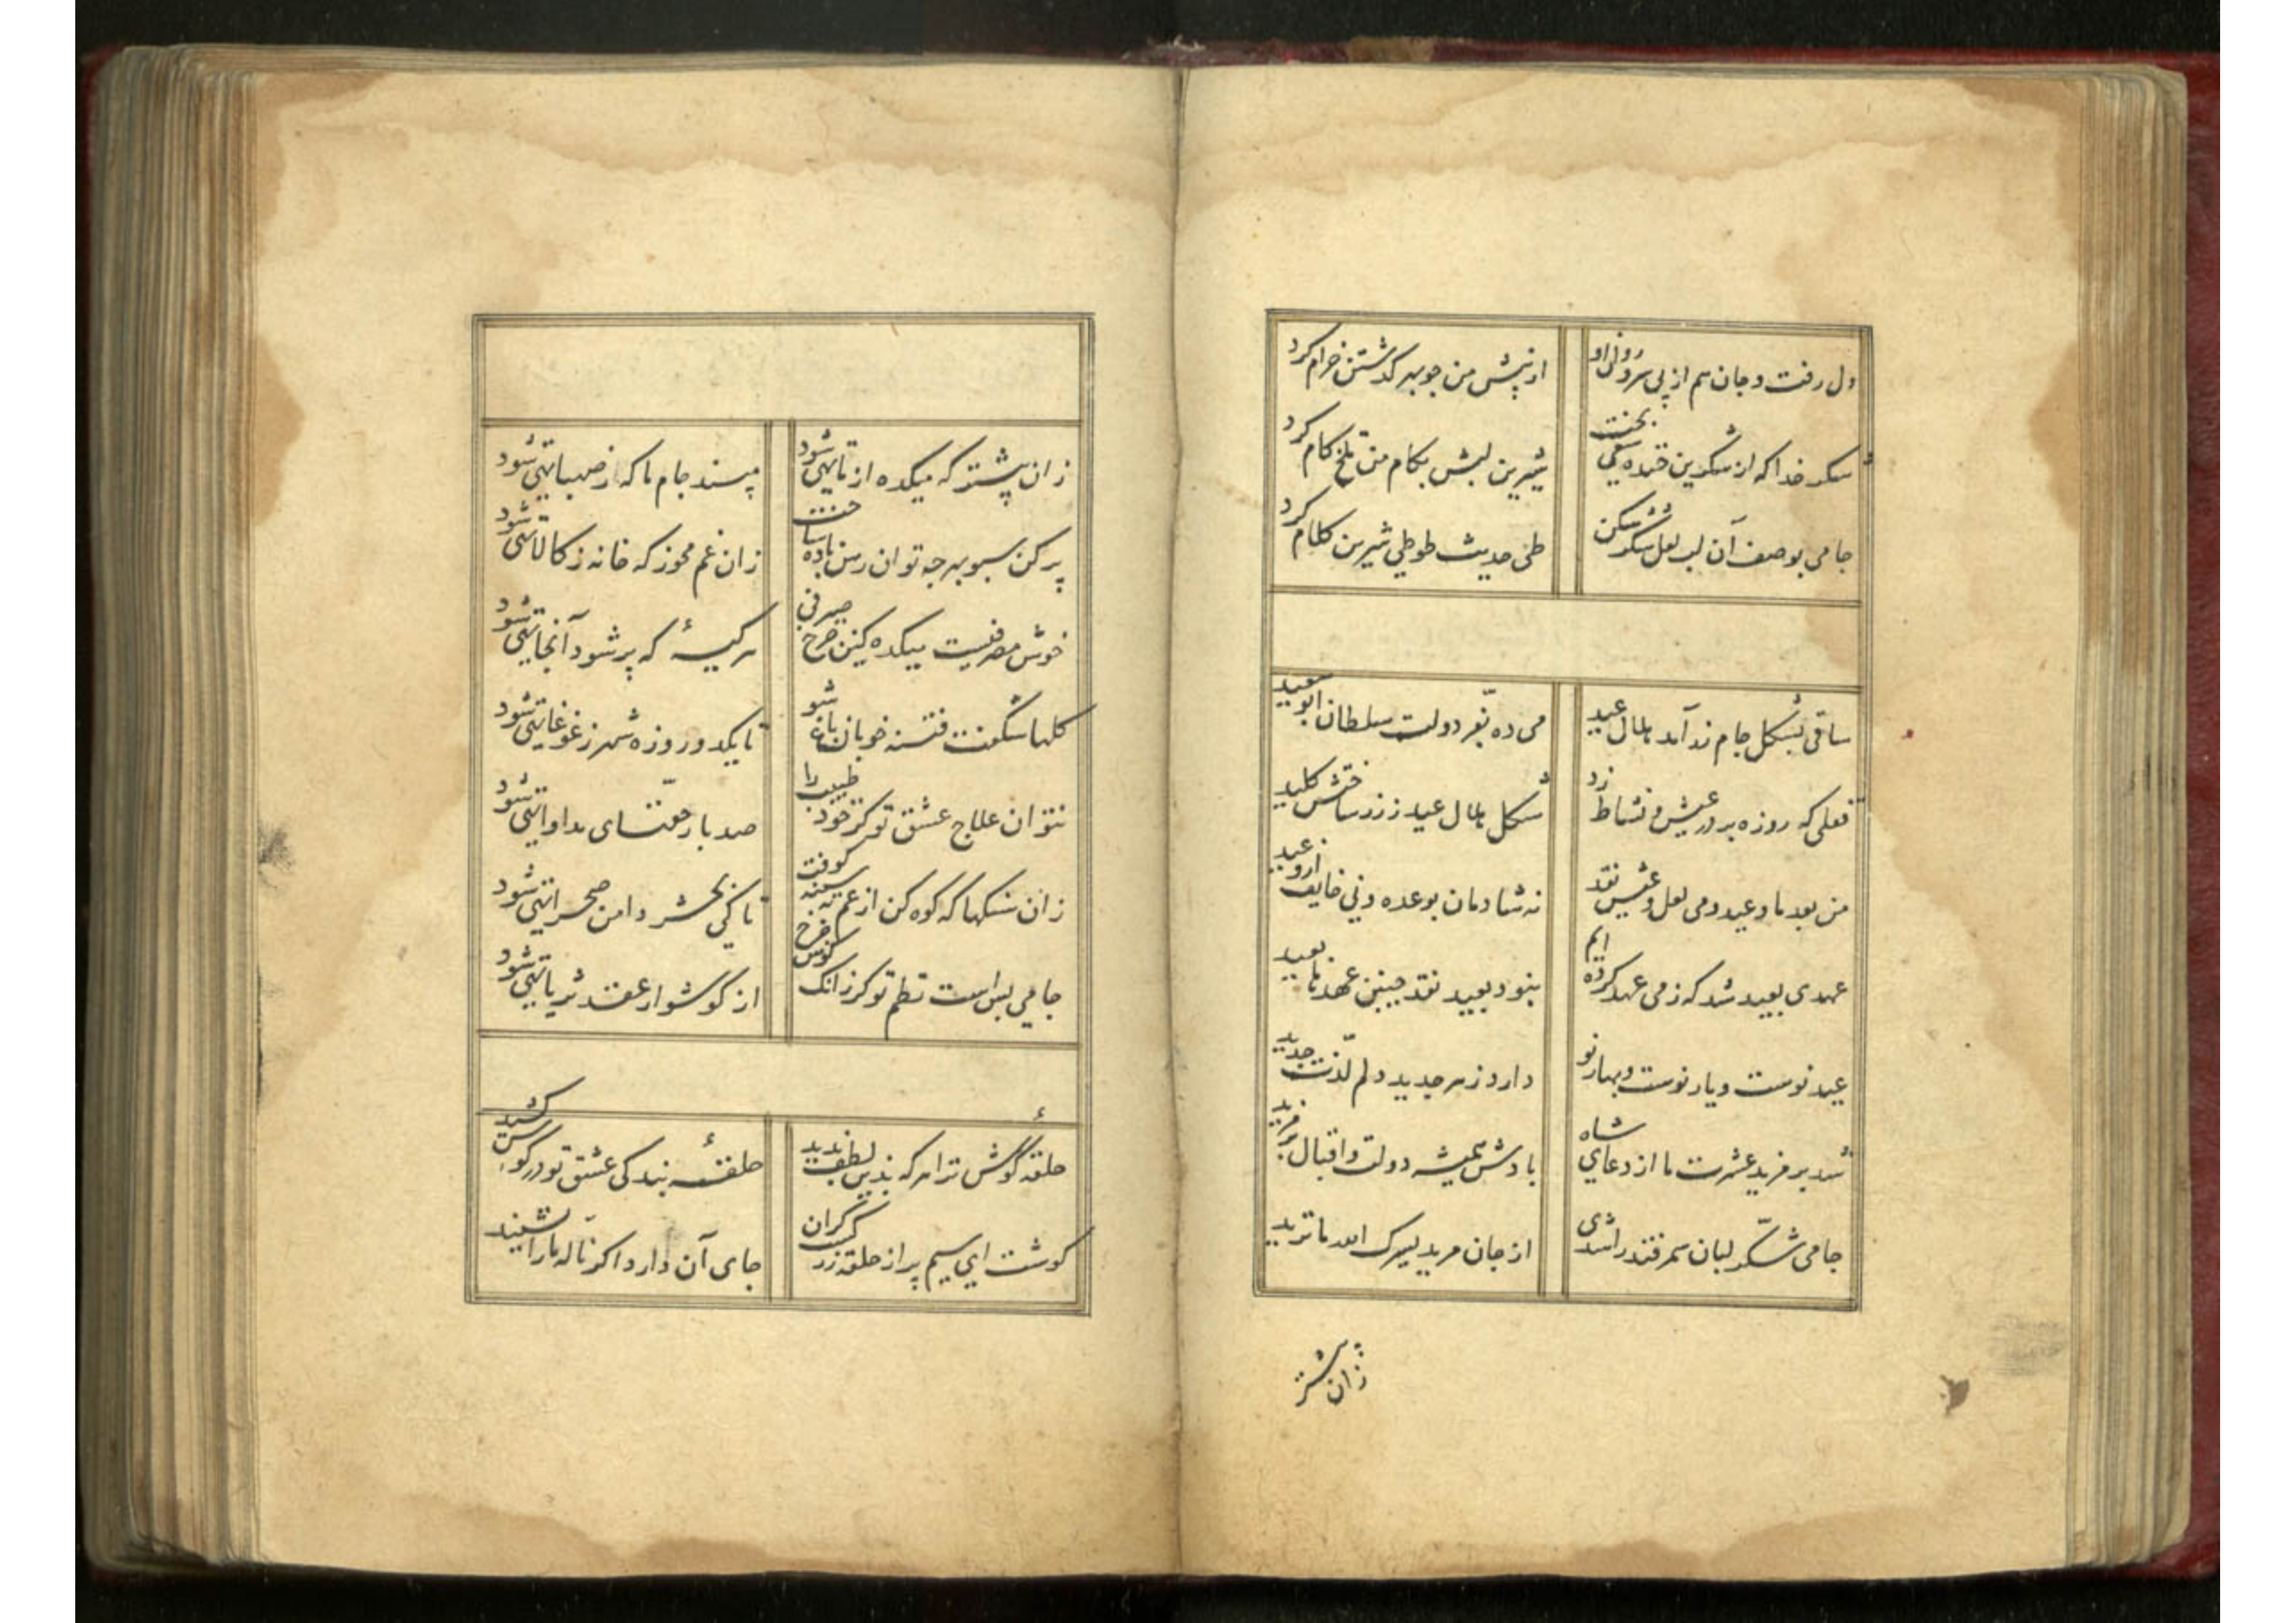 دل رفت و جان هم از پی سرو روان او
از پیش من چو بهر گذشتن خرام کرد
شکر خدا که از شکرین خنده سقی بخت
شیرین لبش بکام من تلخ کام کرد
جامی بوصف آن لب لعل شکر شکن
طی حدیث طوطی شیرین کلام کرد
ساقی بشکل جام زر آمد هلال عید
می ده بفر دولت سلطان ابوسعید
قفلی که روزه بر در عیش و نشاط زد
شکل هلال عید ز زر ساختش کلید
من بعد ما و عید و می لعل و عیش نقد
نه شادمان بوعده و نی خایف از وعید
عهدی بعید شد که ز می عهد کرده ایم
بنود بعید نقد چنین عهدنا بعید
عید نوست و یار نوست و بهار نو
دارد ز هر جدید دلم لذت جدید
شد بر مزید عشرت ما از دعای شاه
بادش همیشه دولت و اقبال بر مزید
جامی شکر لبان سمرقند را شدی
از جان مرید یسرک الله ما ترید
زان پیشتر
زان پیشتر که میکده از ما تهی شود
مپسند جام ما که ز صهبا تهی شود
پر کن سبو بهر چه توان زین باده ساخت
زان غم مخور که خانه ز کالا تهی شود
خوش مصرفیست میکده کین چرخ صیرفی
هر کیسهٔ که پر شود آنجا تهی شود
گلها شگفت فتنه خوبان باغ شو
تا یکدو روزه شهر ز غوغا تهی شود
نتوان علاج عشق تو گر خود طبیب را
صد بار حقهای مداوا تهی شود
زان سنگها که کوه کن از غم بسینه کوفت
تا کی بحشر دامن صحرا تهی شود
جامی بس است نظم تو گر زانک گوش چرخ
از گوشوار عقد ثریا تهی شود
حلقهٔ گوش ترا هر که بدین لطف بدید
حلقهٔ بندگی عشق تو در گوش کشید
گوشت ای سیم بر از حلقه زر گشت گران
جای آن دارد اگر ناله ما را نشنید